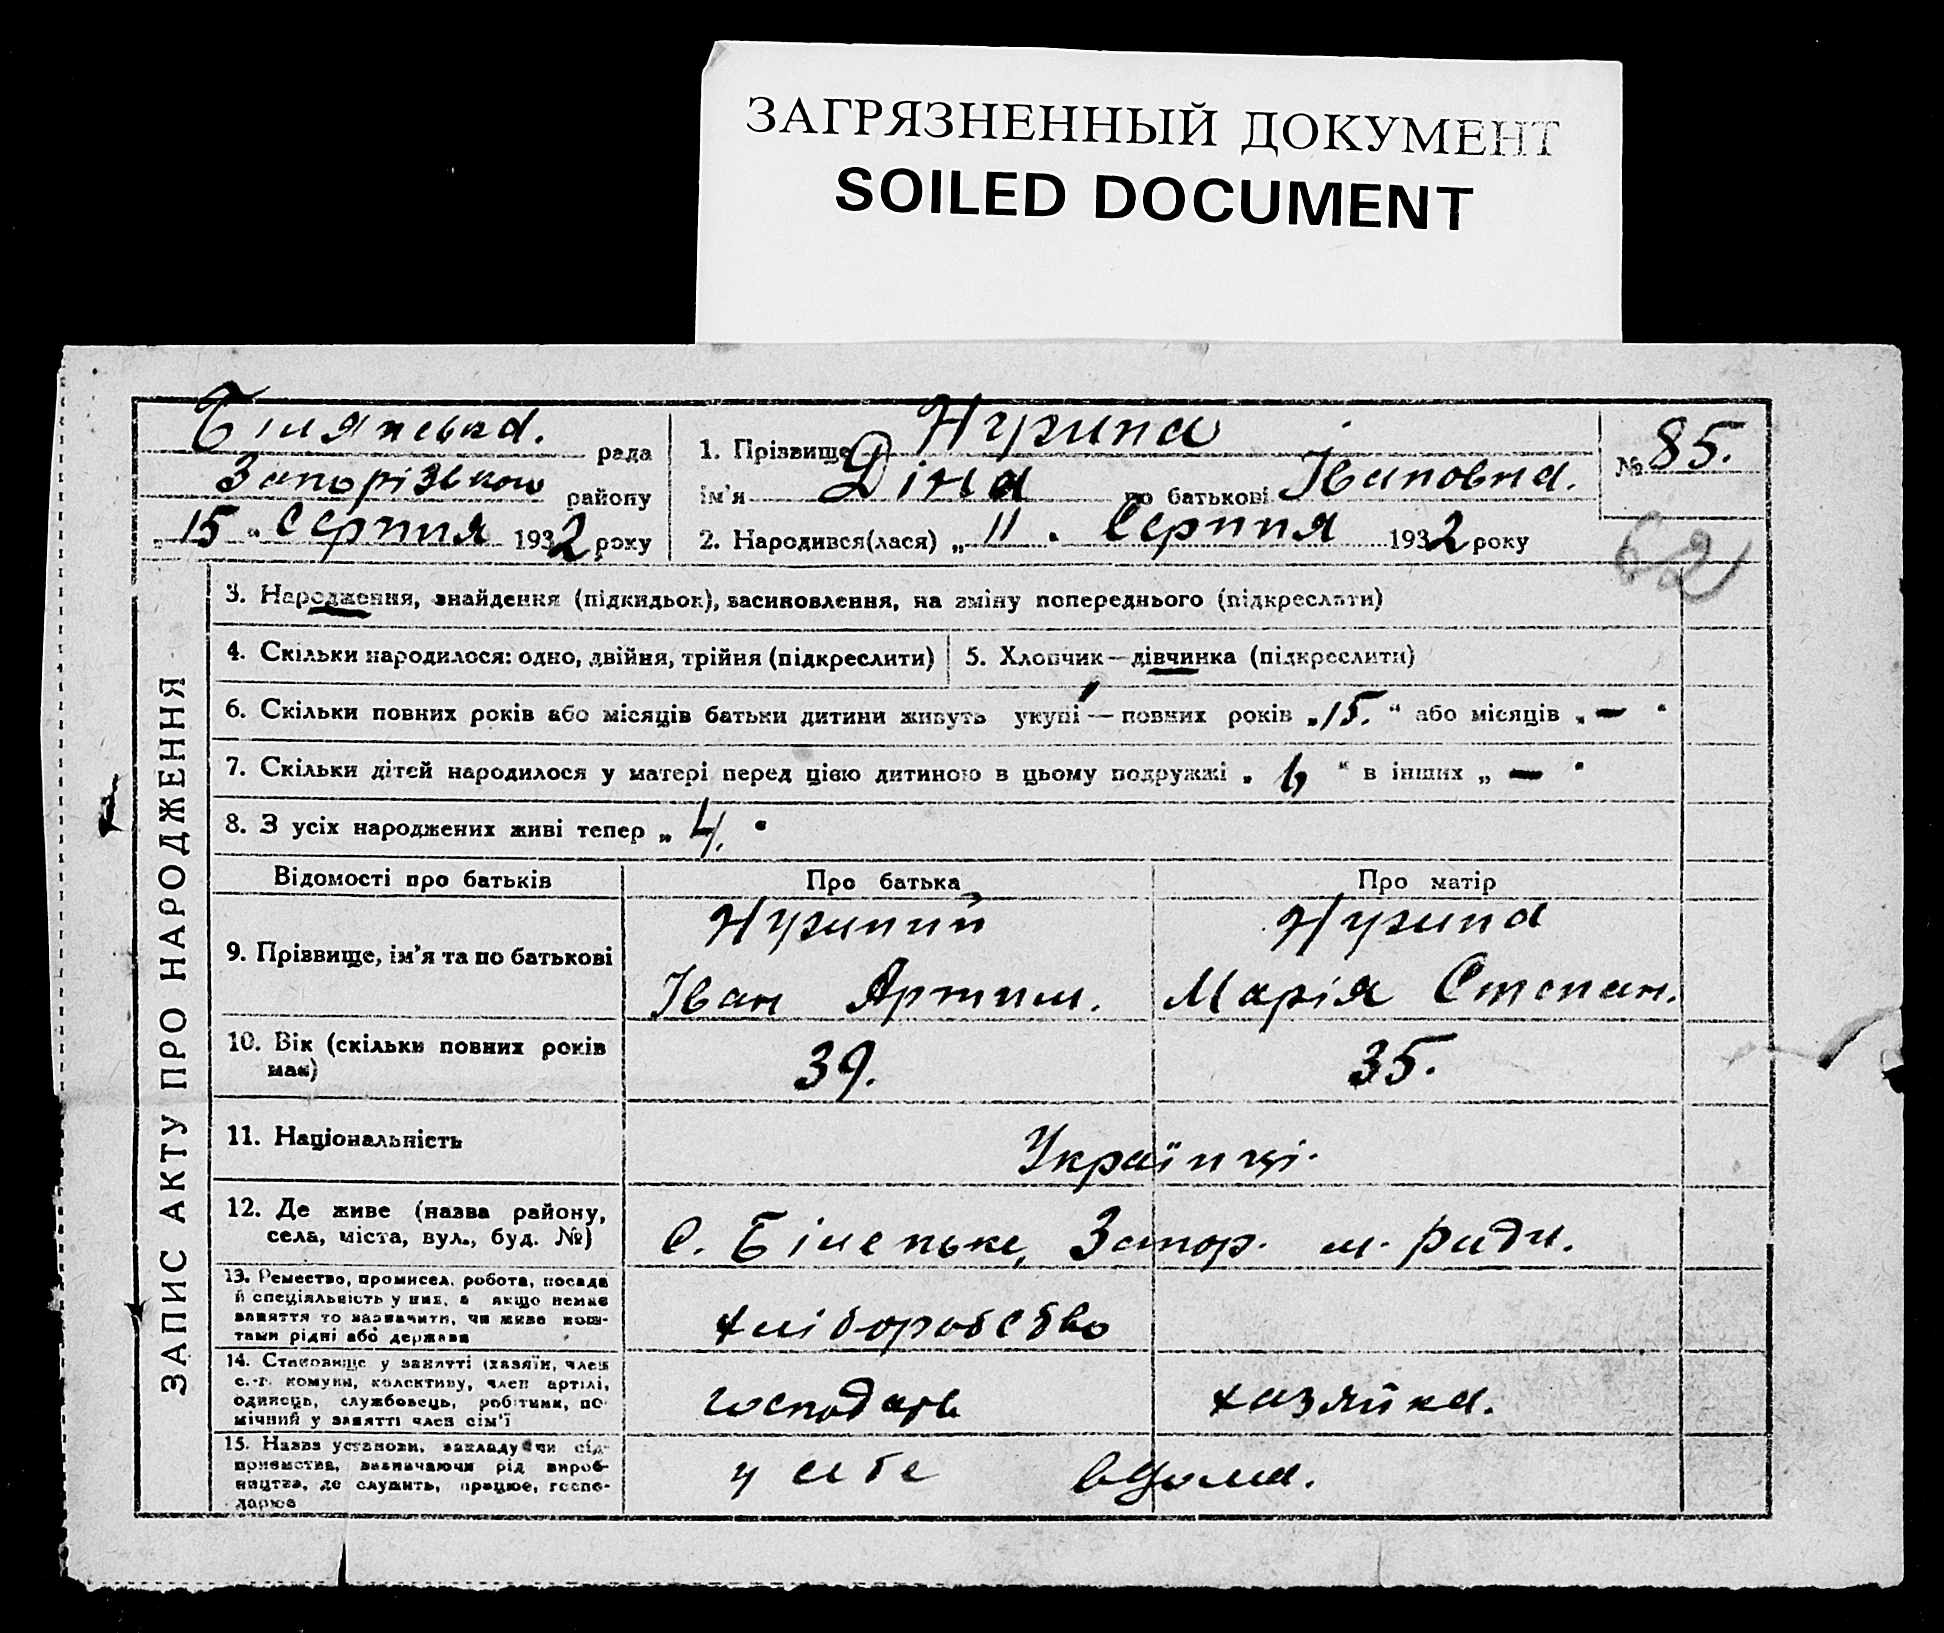 ЗАГРЯЗНЕННЫЙ ДОКУМЕНТ
SOILED DOCUMENT
рада
Запорізького району
„15“ Серпня 1932 року
1. Прізвище
ім’я Діна по батькові Івановна.
2. Народився(лася) „11“ Серпня 1932 року
№ 85.
62
ЗАПИС АКТУ ПРО НАРОДЖЕННЯ
3. Народження, знайдення (підкидьок), засиновлення, на зміну попереднього (підкреслити)
4. Скільки народилося: одно, двійня, трійня (підкреслити)
5. Хлопчик—дівчинка (підкреслити)
6. Скільки повних років або місяців батьки дитини живуть укупі — повних років „15.“ або місяців „—“
7. Скільки дітей народилося у матері перед цією дитиною в цьому подружжі „6“ в інших „—“
8. З усіх народжених живі тепер „4.“
Відомості про батьків
Про батька
Про матір
9. Прізвище, ім’я та по батькові
Іван Артим.
Марія Степан.
10. Вік (скільки повних років
має)
39.
35.
11. Національність
Українці.
12. Де живе (назва району,
села, міста, вул., буд. №)
с. Біленьке, Запор. м. ради.
13. Ремество, промисел, робота, посада
й спеціяльність у них, а якщо немає
заняття то зазначити, чи живе кош-
тами рідні або держави
хліборобство
14. Становище у занятті (хазяїн, член
с.-г. комуни, колективу, член артілі,
одинець, службовець, робітник, по-
мічний у занятті член сім’ї
господарь
хазяйка.
15. Назва установи, закладу чи під-
приємства, визначаючи рід вироб-
ництва, де служить, працює, госпо-
дарює
у себе вдома.